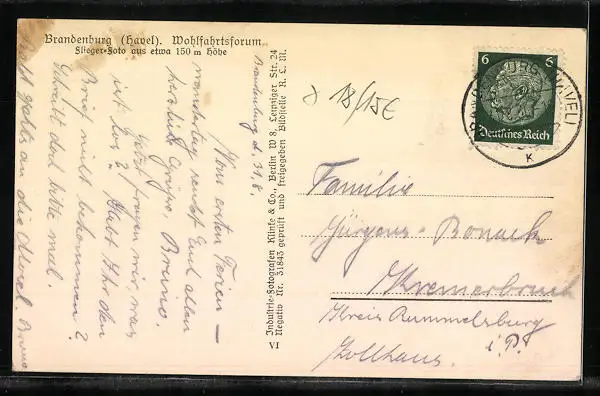 Brandenburg (Havel). Wohlfahrtsforum
Flieger-Foto aus etwa 150 m Höhe
Brandenburg d. 31.8
Vom ersten Ferien-
wandertag sendet Euch allen
herzliche Grüße, Bruno.
Jetzt fragen wir, was
ist los? Habt Ihr den
Brief nicht bekommen?
Schreibt doch bitte mal.
geht's an die Havel. Bruno
Industrie-Fotografen Klinke & Co., Berlin W 8, Leipziger Str. 24
Negativ Nr. 31845 geprüft und freigegeben Bildstelle R. L. M.
VI
18/15E
6 6
Deutsches Reich
(HAVEL)
K
Familie
Jürgens-Bonack
Kremerbruch
Kreis Rummelsburg
i. P.
Zollhaus.